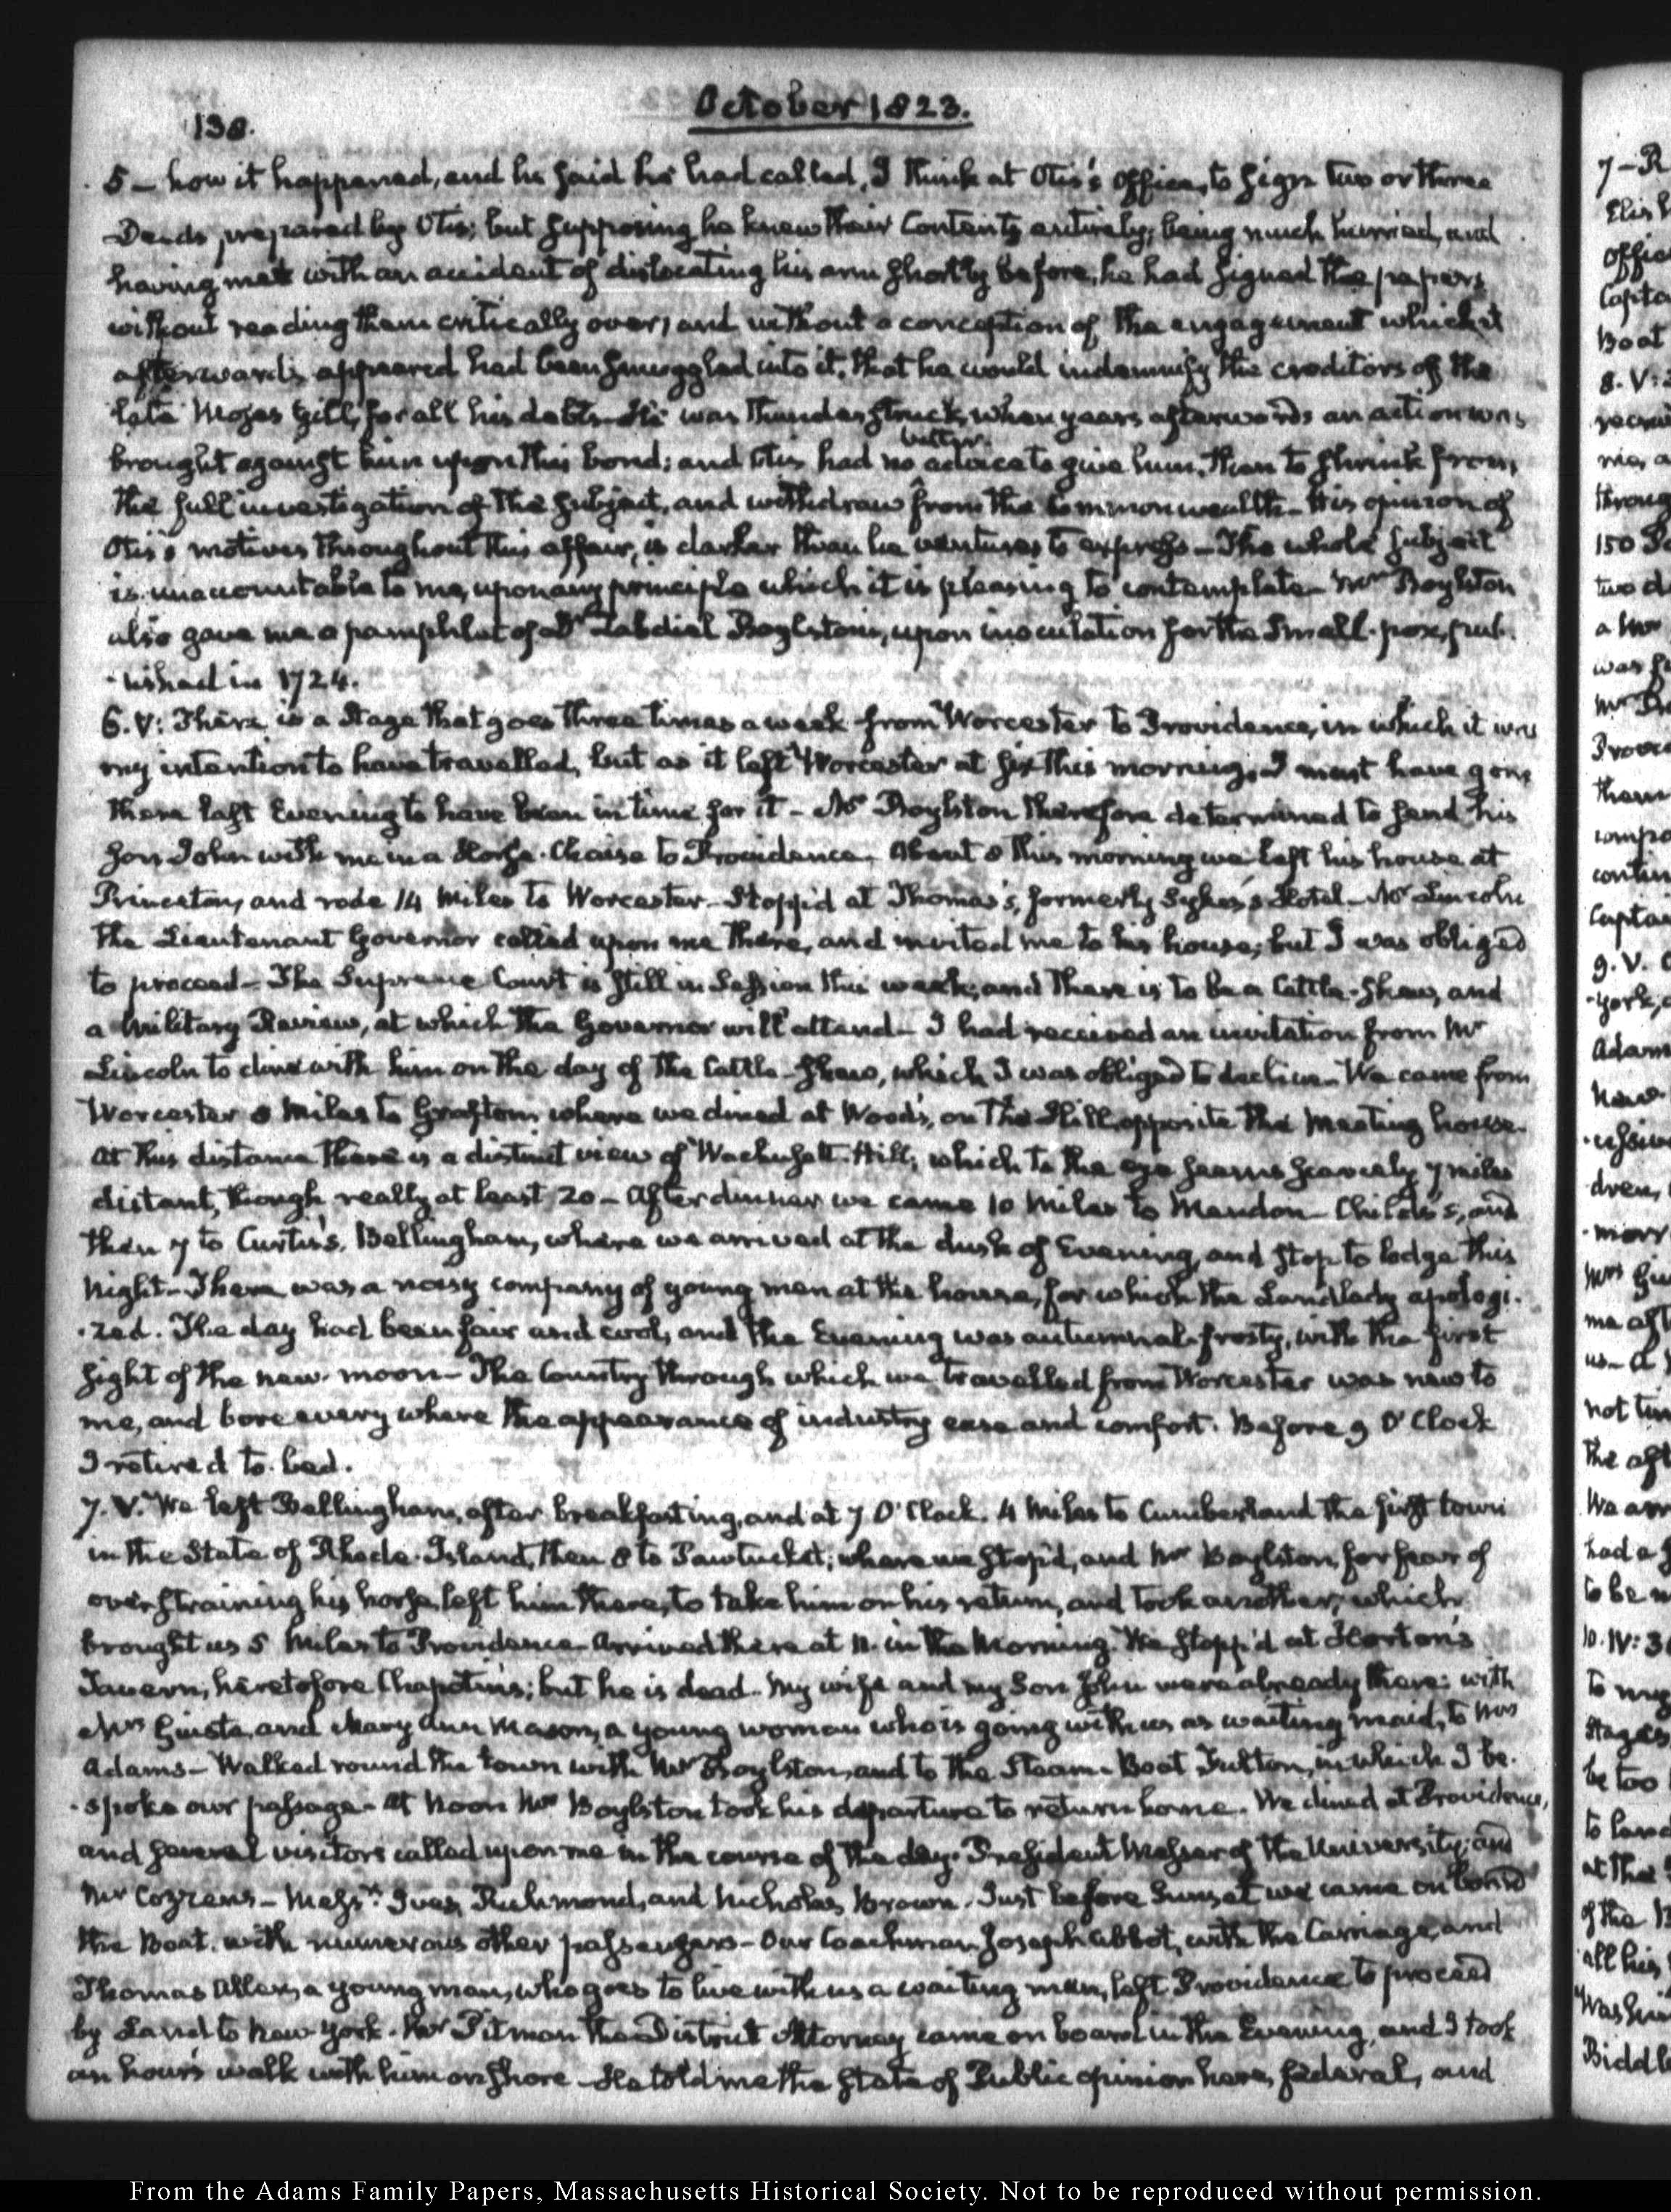 138.
October 1823.
5 – how it happened, and he said he had called, I think at Otis's office, to sign two or three
Deeds, prepared by Otis; but supposing he knew their Contents entirely; being much hurried, and
having met with an accident of dislocating his arm shortly before, he had signed the papers
without reading them critically over, and without a conception of the engagement which it
afterwards appeared had been smuggled into it, that he would indemnify the creditors of the
late Moses Gill, for all his debts – He was thunderstruck, when years afterwards an action was
better
brought against him upon this bond; and Otis had no advice to give him, than to shrink from
the full investigation of the subject, and withdraw from the Commonwealth – His opinion of
Otis's motives throughout this affair, is darker than he ventures to express – The whole subject
is unaccountable to me, upon any principle which it is pleasing to contemplate – Mr Boylston
also gave me a pamphlet of Dr Zabdiel Boylston's, upon inoculation for the Small-pox, pub-
-lished in 1724.
6. V: There is a Stage that goes three times a week from Worcester to Providence, in which it was
my intention to have travelled, but as it left Worcester at six this morning, I must have gone
there last Evening to have been in time for it – Mr Boylston therefore determined to send his
Son John with me in a Horse-Chaise to Providence. About 8 this morning we left his house at
Princeton, and rode 14 Miles to Worcester – Stopp'd at Thomas's, formerly Sykes's Hotel – Mr Lincoln
the Lieutenant Governor called upon me there, and invited me to his house; but I was obliged
to proceed – The Supreme Court is still in Session this week; and there is to be a Cattle-Show, and
a Military Review, at which the Governor will attend – I had received an invitation from Mr
Lincoln to dine with him on the day of the Cattle-Show, which I was obliged to decline – We came from
Worcester 8 Miles to Grafton; where we dined at Wood's, on the Hill, opposite the Meeting house.
At this distance there is a distinct view of Wachusett-Hill, which to the eye seems scarcely 7 miles
distant, though really at least 20 – After dinner we came 10 Miles to Mendon – Childs's, and
then 7 to Curtis's, Bellingham, where we arrived at the dusk of Evening, and stop to lodge this
Night – There was a noisy company of young men at the house, for which the Landlady apologi-
-zed. The day had been fair and cool, and the Evening was autumnal-frosty, with the first
sight of the new-moon – The Country through which we travelled from Worcester was new to
me, and bore every where the appearance of industry ease and comfort. Before 9 O'Clock
I retired to bed.
7. V. We left Bellingham, after breakfasting, and at 7 O'Clock. 4 Miles to Cumberland the first town
in the State of Rhode-Island, then 8 to Pawtucket; where we stop'd, and Mr Boylston, for fear of
overstraining his horse, left him there, to take him on his return, and took another, which
brought us 5 Miles to Providence – Arrived there at 11. in the Morning. We stopp'd at Horton's
Tavern, heretofore Chapotin's; but he is dead. My wife and my Son John were already there: with
Mrs Giusta, and Mary Ann Mason, a young woman who is going with us as waiting maid, to Mrs
Adams – Walked round the town with Mr Boylston, and to the Steam-Boat Fulton, in which I be-
-spoke our passage – At Noon Mr Boylston took his departure to return home. We dined at Providence,
and several visitors called upon me in the course of the day. President Messer of the University; and
Mr Cozzens – Messrs. Ives, Richmond, and Nicholas Brown. Just before Sunset we came on board
the Boat. with numerous other passengers – Our Coachman Joseph Abbot, with the Carriage, and
Thomas Allen, a young man, who goes to live with us a waiting man, left Providence to proceed
by Land to New York. Mr Pitman the District Attorney came on board in the Evening, and I took
an hour's walk with him on shore – He told me the state of Public opinion here, federal, and
From the Adams Family Papers, Massachusetts Historical Society. Not to be reproduced without permission.